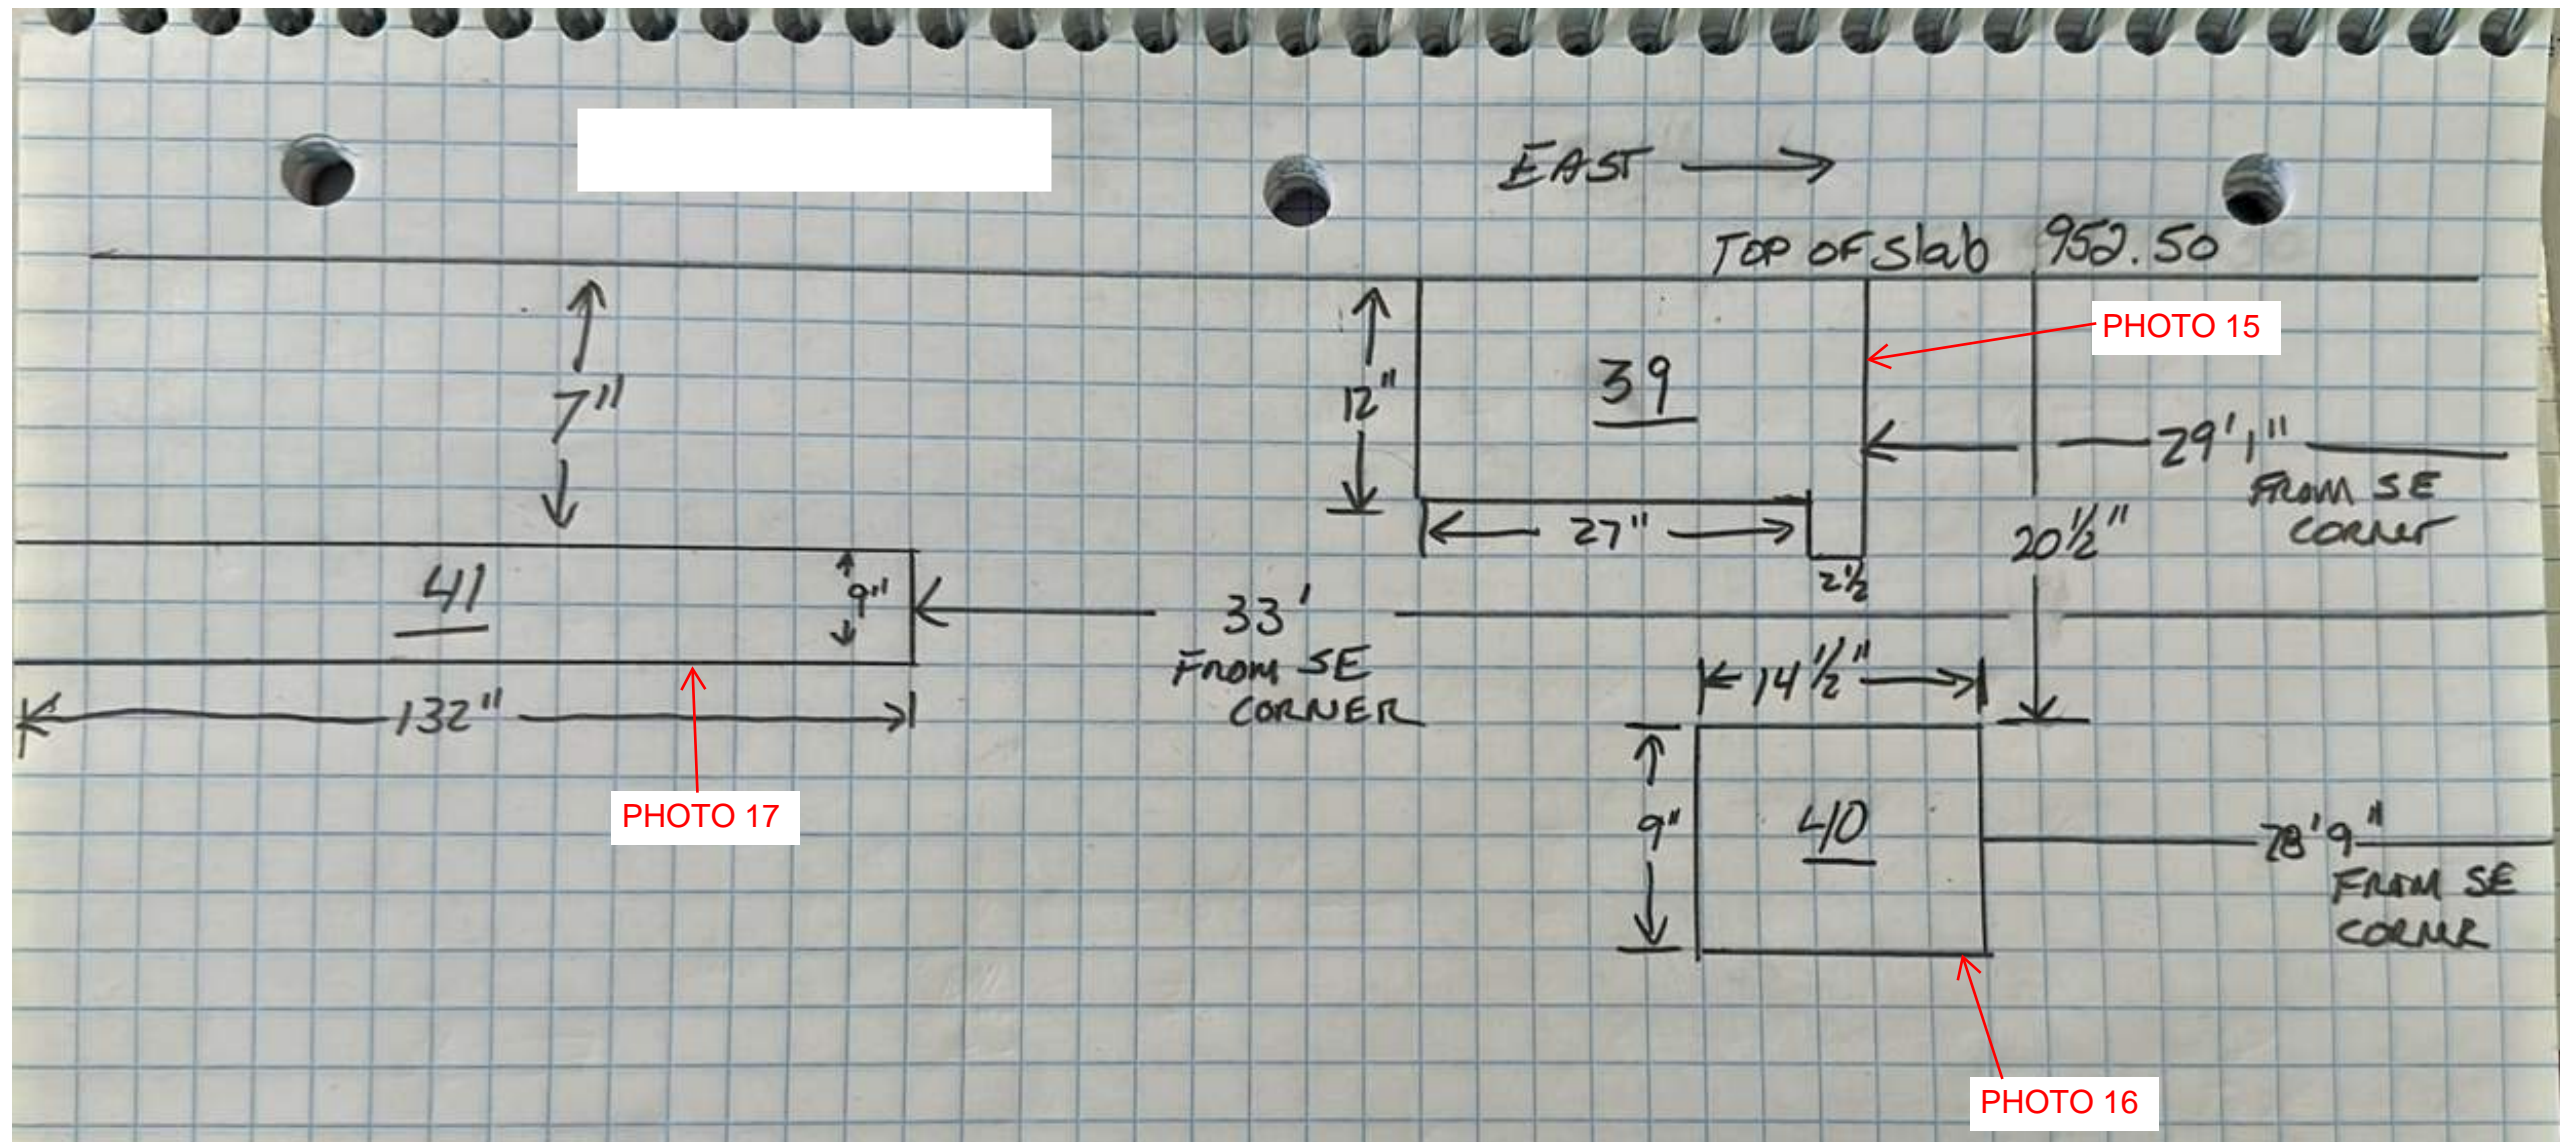 EAST
TOP OF Slab 952.50
PHOTO 15
7"
12"
39
29'1"
FROM SE
CORNER
27"
20 1/2"
2 1/2
41
9"
33'
FROM SE
CORNER
14 1/2"
132"
PHOTO 17
9"
40
28'9"
FROM SE
CORNER
PHOTO 16